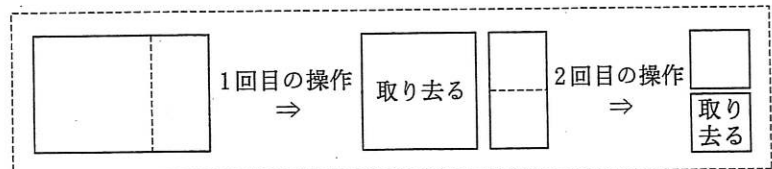 1回目の操作
⇒
取り去る
2回目の操作
⇒
取り
去る